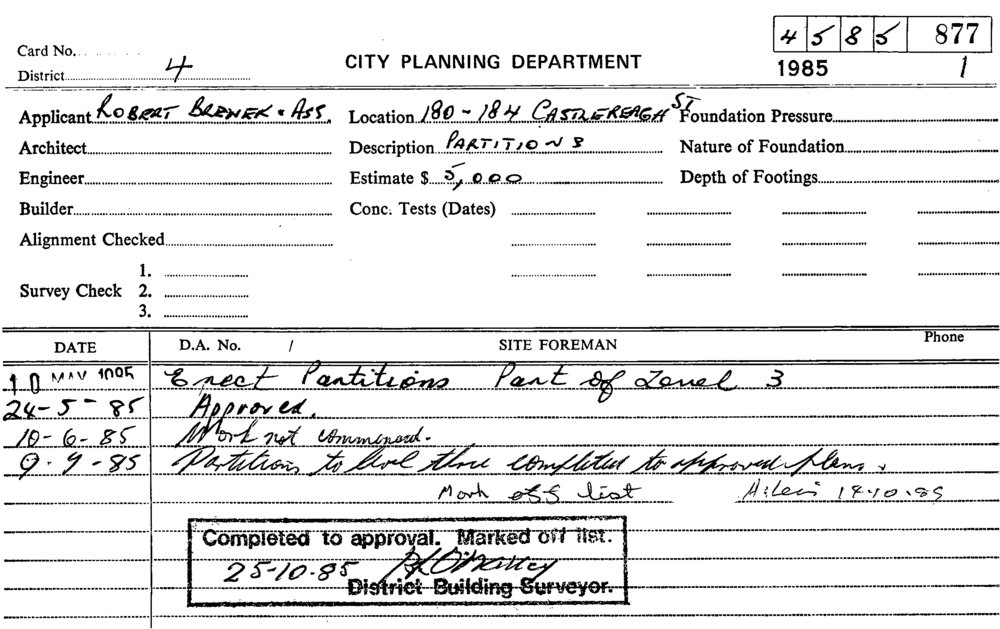 4 5 8 5 877
Card No.
District 4 CITY PLANNING DEPARTMENT 1985 1
Applicant ROBERT BREWER & ASS. Location 180-184 CASTLEREAGH ST Foundation Pressure
Architect Description PARTITIONS Nature of Foundation
Engineer Estimate $ 5,000 Depth of Footings
Builder Conc. Tests (Dates)
Alignment Checked
1.
Survey Check 2.
3.
DATE D.A. No. / SITE FOREMAN Phone
10 MAY 1985 Erect Partitions Part of Level 3
24-5-85 Approved.
10-6-85 Work not commenced.
9-9-85 Partitions to level three completed to approved plans.
Mark off list 14-10-85
Completed to approval. Marked off list.
25-10-85
District Building Surveyor.